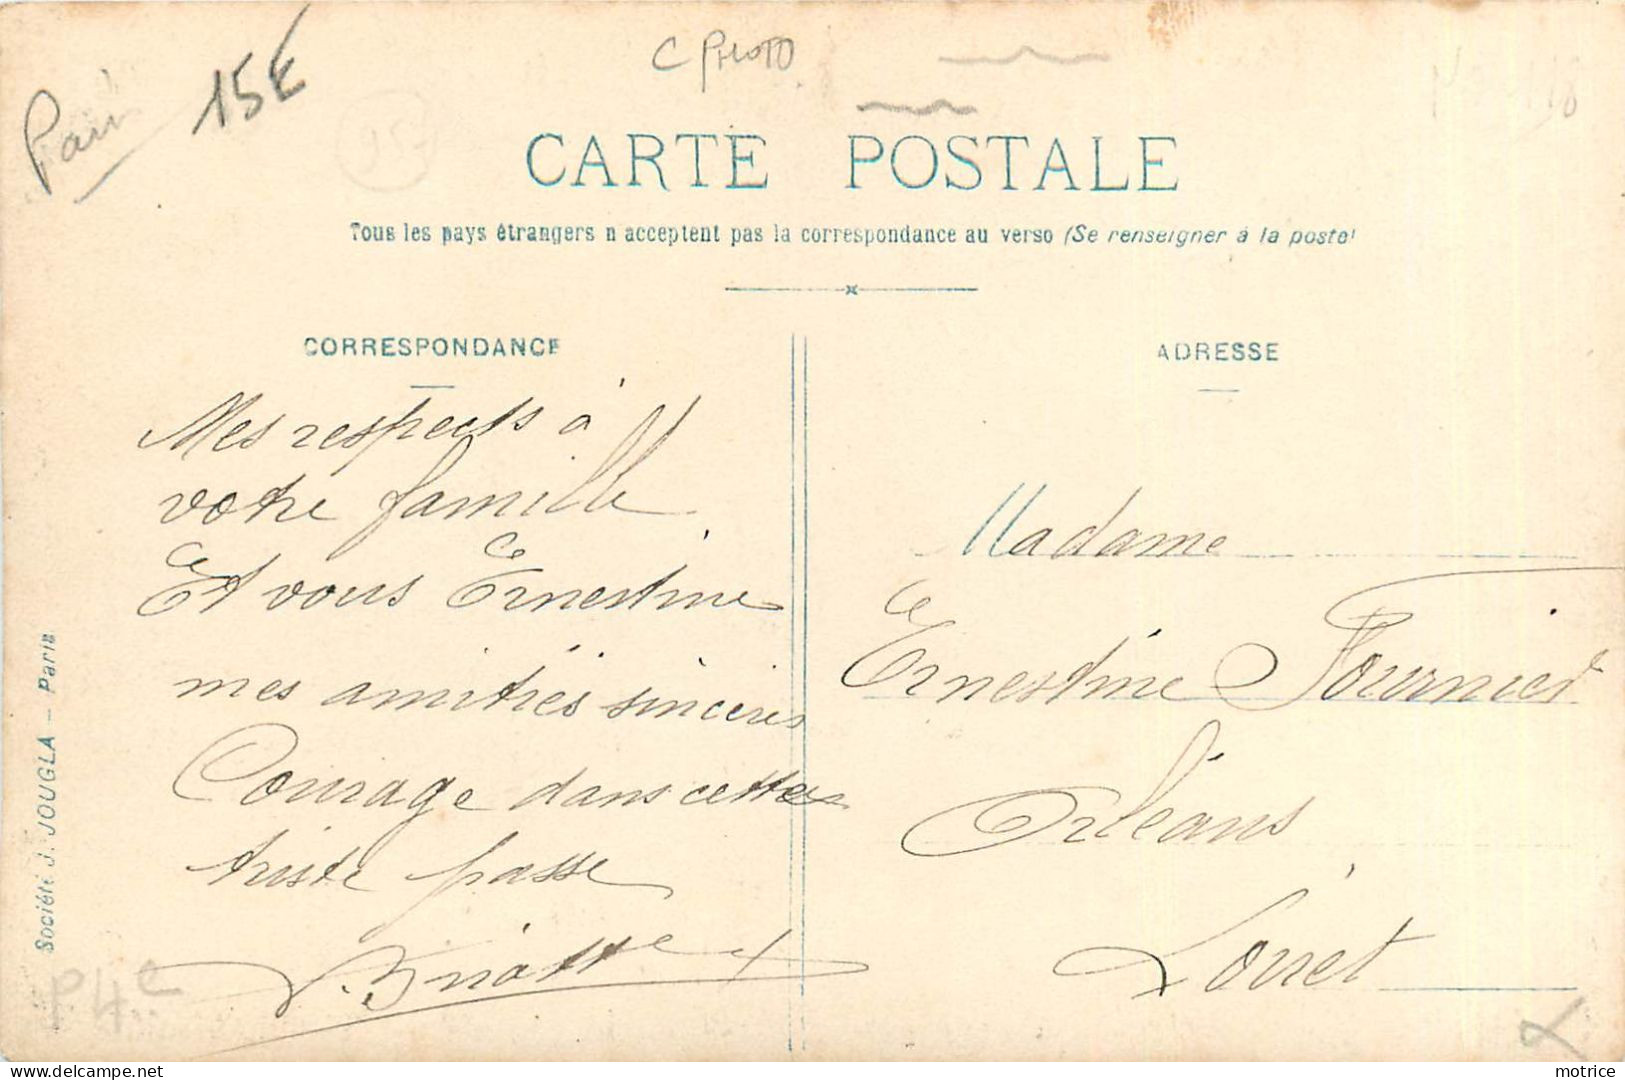 Paris
15E
C PHOTO
CARTE POSTALE
Tous les pays étrangers n acceptent pas la correspondance au verso (Se renseigner à la poste)
CORRESPONDANCE
ADRESSE
Mes respects à
votre famille
Et vous Ernestine
mes amitiés sincères
Courage dans cette
triste passe
Madame
Ernestine Fournier
Orléans
Loiret
Société J. JOUGLA — Paris
P4e
motrice